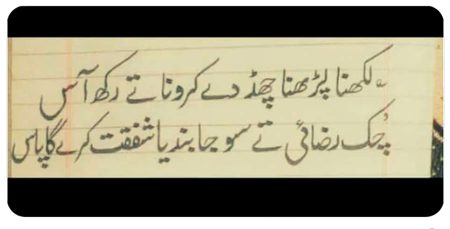 لکھنا پڑھنا چھڈ دے کرونا تے رکھ آس
چُک رضائی تے سو جا بندیا شفقت کرے گا پاس